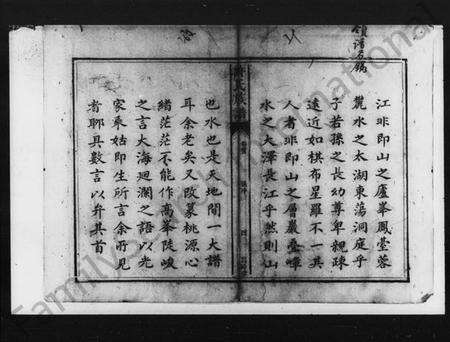 江非即山之廬峯鳳堂蓉
麓水之太湖東蕩洞庭乎
子若孫之長幼尊卑親疎
遠近如棋布星羅不一其
人者非即山之層巖疊嶂
水之大澤長江乎然則山
也水也是天地間一大譜
耳余老矣又改篆桃源心
緒茫茫不能作高峯陡峻
之言大海迴瀾之語以光
家乘姑即生所言余所見
者聊具數言以弁其首
FamilySearch International